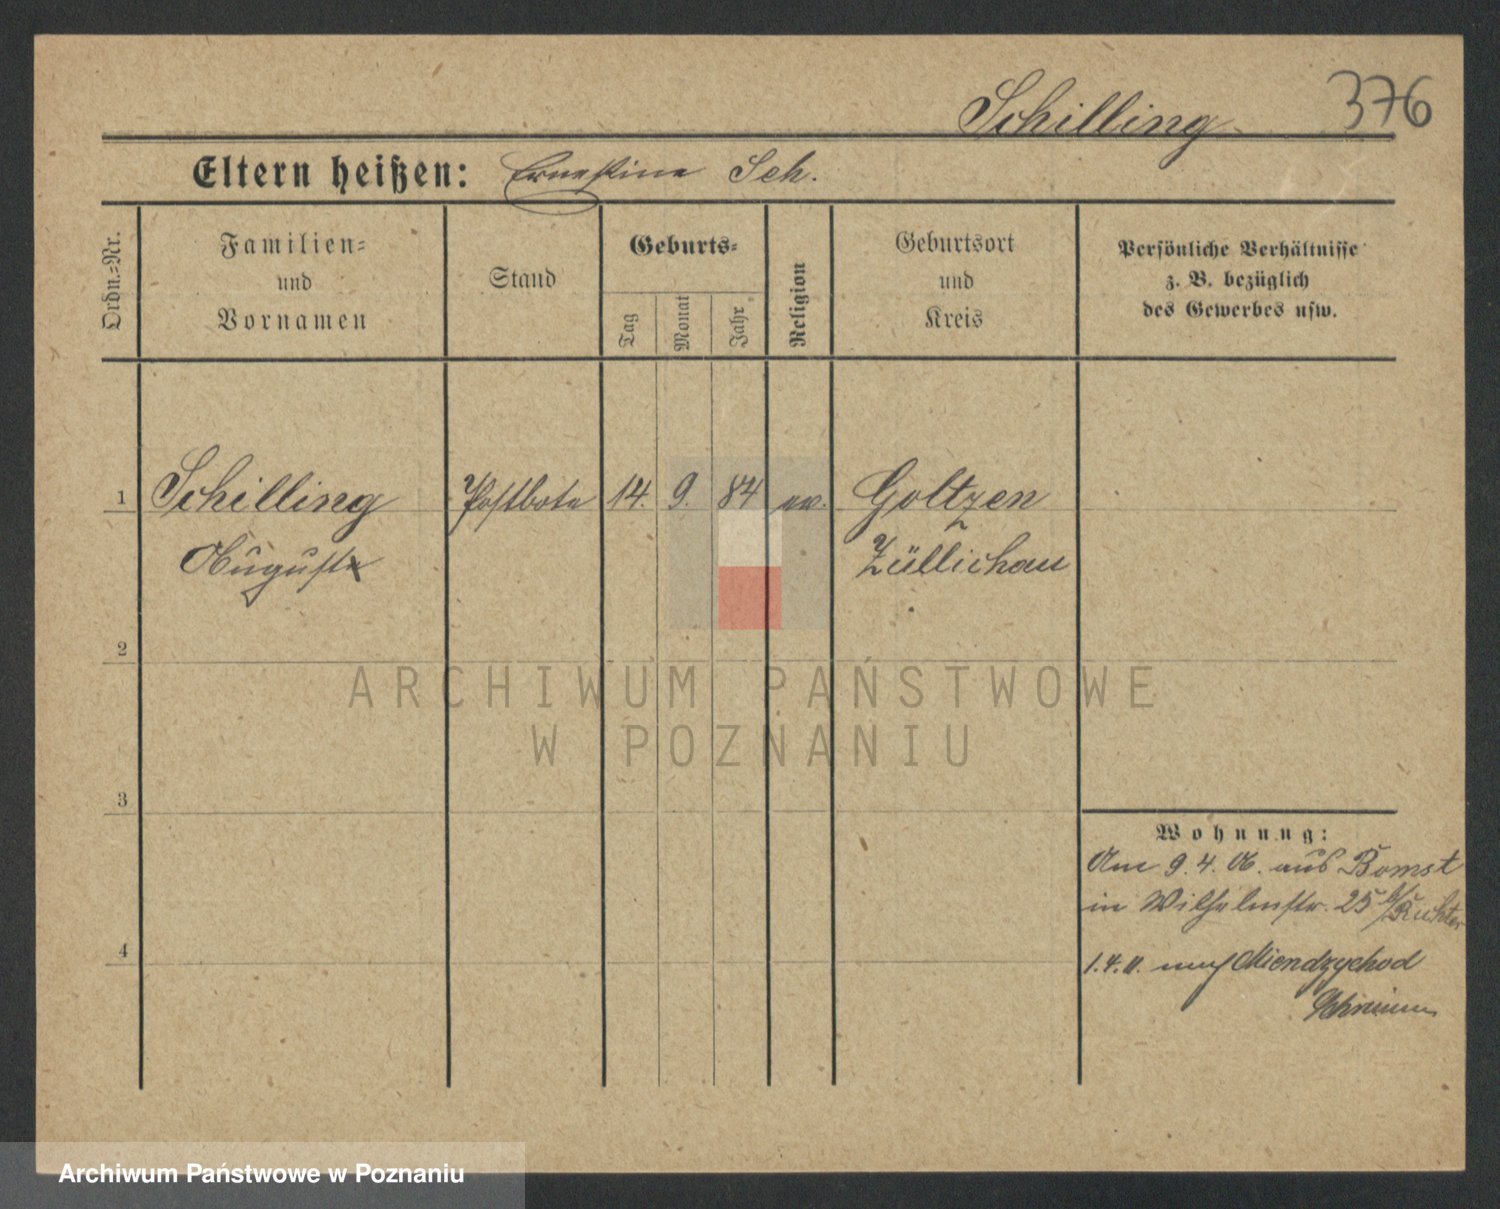 376
Schilling
Eltern heißen: Ernestine Sch.
Ordn.=Nr.
Familien=
und
Vornamen
Stand
Geburts=
Tag
Monat
Jahr
Religion
Geburtsort
und
Kreis
Persönliche Verhältnisse
z. B. bezüglich
des Gewerbes usw.
1 Schilling Postbote 14. 9. 84 ev. Goltzen
August Züllichau
2
ARCHIWUM PAŃSTWOWE
W POZNANIU
3
Wohnung:
Am 9. 4. 06. aus Bomst
in Wilhelmstr. 25 b/
4
1. 4. 11. nach Miendzychod
Schrimm
Archiwum Państwowe w Poznaniu